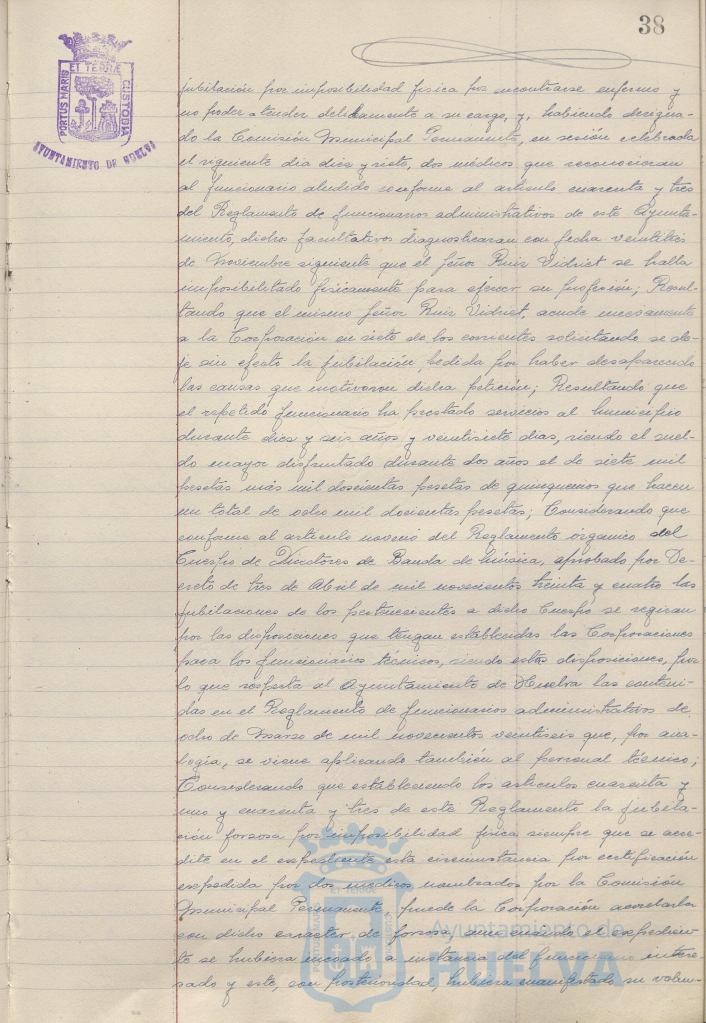 38
ET TERRA
PORTUS MARIS
CUSTODIA
AYUNTAMIENTO DE HUELVA
jubilación por imposibilidad física por encontrarse enfermo y
no poder atender debidamente a su cargo, y, habiendo designa-
do la Comisión Municipal Permanente, en sesión celebrada
el siguiente dia diez y siete, dos médicos que reconocieran
al funcionario aludido conforme al artículo cuarenta y tres
del Reglamento de funcionarios administrativos de este Ayunta-
miento, dichos facultativos diagnosticaron con fecha veintitrés
de Noviembre siguiente que el Señor Ruiz Vidriet se halla
imposibilitado físicamente para ejercer su profesión; Resul-
tando que el mismo Señor Ruiz Vidriet, acude nuevamente
a la Corporación en siete de los corrientes solicitando se de-
je sin efecto la jubilación pedida por haber desaparecido
las causas que motivaron dicha petición; Resultando que
el repetido funcionario ha prestado servicios al municipio
durante diez y seis años y veintisiete dias, siendo el suel-
do mayor disfrutado durante dos años el de siete mil
pesetas más mil doscientas pesetas de quinquenios que hacen
un total de ocho mil doscientas pesetas; Considerando que
conforme al articulo noveno del Reglamento orgánico del
Cuerpo de Directores de Banda de Música, aprobado por De-
creto de tres de Abril de mil novecientos treinta y cuatro las
jubilaciones de los pertenecientes a dicho Cuerpo se regiran
por las disposiciones que tengan establecidas las Corporaciones
para los funcionarios técnicos, siendo estas disposiciones, por
lo que respecta al Ayuntamiento de Huelva las conteni-
das en el Reglamento de funcionarios administrativos de
ocho de Marzo de mil novecientos veintiseis que, por ana-
logía, se viene aplicando también al personal técnico;
Considerando que estableciendo los articulos cuarenta y
uno y cuarenta y tres de este Reglamento la jubila-
ción forzosa por imposibilidad física siempre que se acre-
dite en el expediente esta circunstancia por certificación
expedida por dos médicos nombrados por la Comisión
Municipal Permanente, puede la Corporación acordarla
con dicho caracter de forzosa, aun cuando el expedien-
te se hubiera incoado a instancia del funcionario intere-
sado y este, con posterioridad, hubiera manifestado su volun-
ET TERRA
PORTUS MARIS
CUSTODIA
Ayuntamiento de
HUELVA